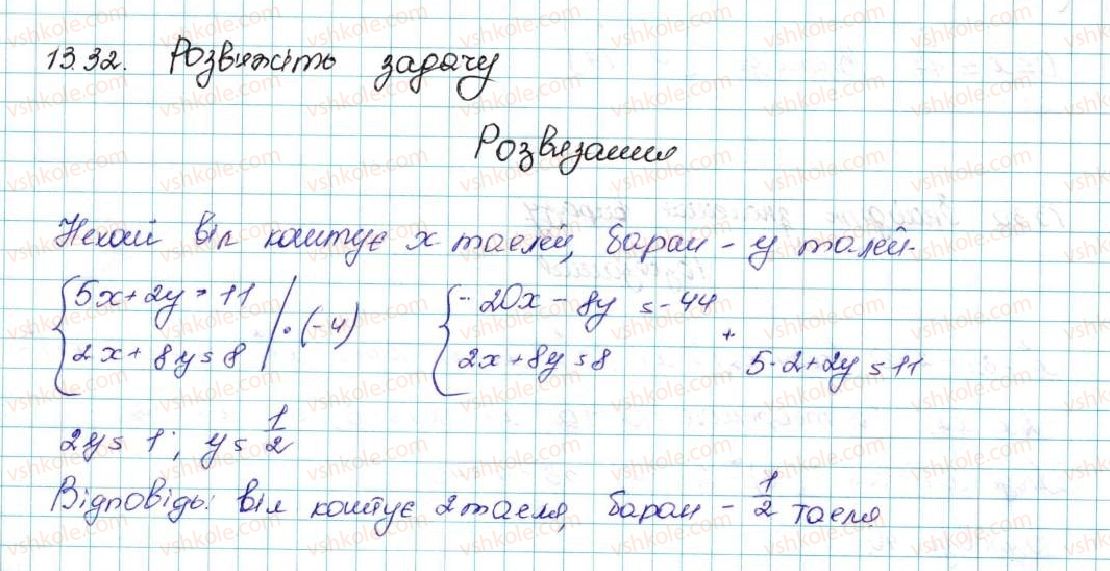 13.32. Розв'яжіть задачу
Розв'язання
Нехай віл коштує x таелей, баран - y талей.
5x + 2y = 11 | · (-4)
2x + 8y = 8
-20x - 8y = -44
2x + 8y = 8
+
5·2 + 2y = 11
2y = 1; y = 1/2
Відповідь: віл коштує 2 таеля, баран - 1/2 таеля